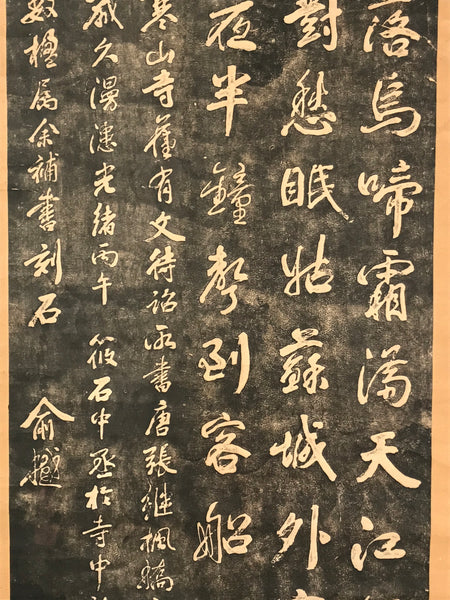 落烏啼霜滿天江
對愁眠姑蘇城外
夜半鐘聲到客船
寒山寺舊有文待詔所書唐張繼楓橋
歲久漫漶光緒丙午筱石中丞於寺中
數楹屬余補書刻石 俞樾